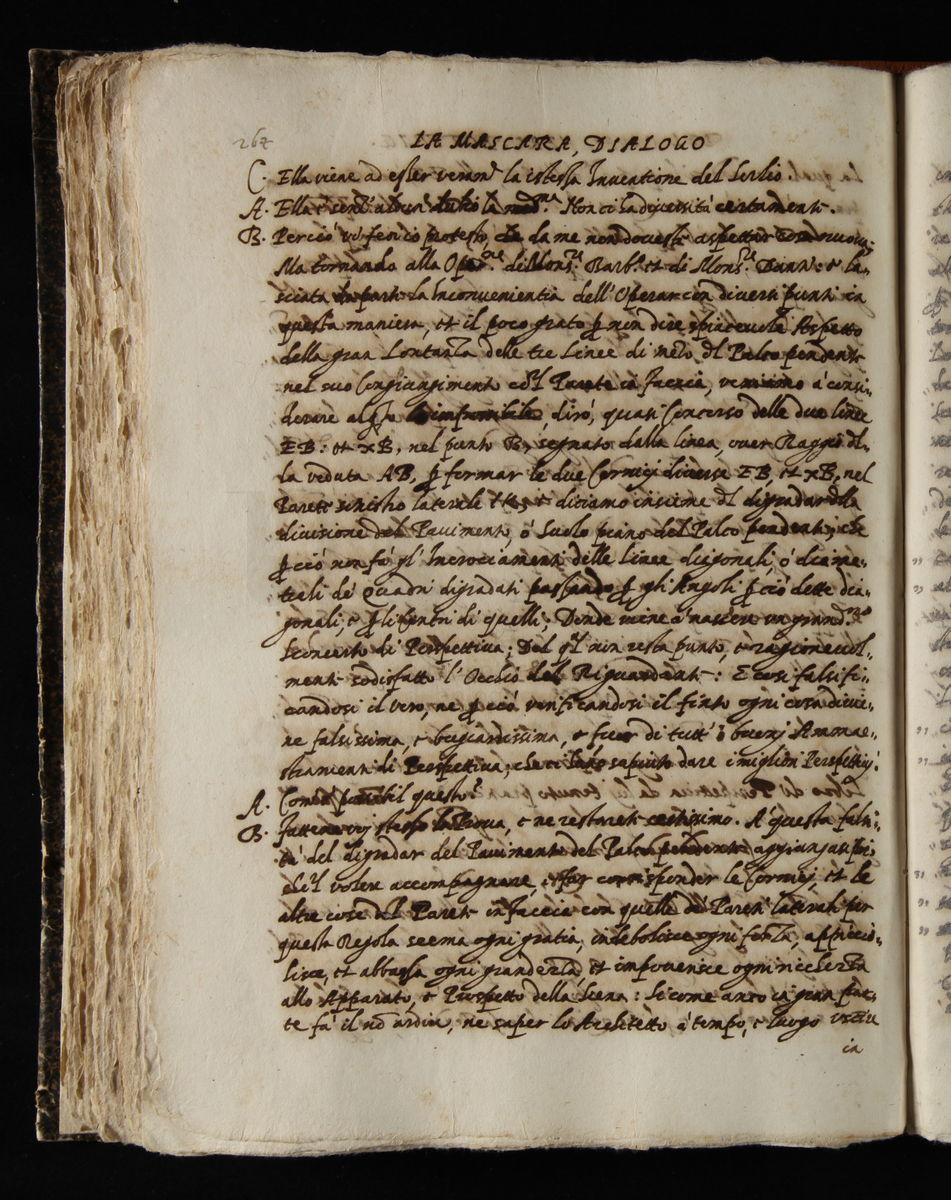 267
LA MASCARA, DIALOGO
C. Ella viene ad esser veramte la istessa Inventione del Serlio.
A. Ella è senz' altro Non ci la diversità certamente.
B. Perciò vi feci io protesto, che da me non doveste aspettar cosa nuova;
Ma tornando alla Opne di Monsr Barb.o et di Monsr Danti: e la-
sciata da parte la Inconvenientia dell' Operar con diversi punti in
questa maniera, et il poco grato p non dire spiacevole Aspetto
della gran Lontanza delle tre Linee di mezo dl Palco pendente
nel suo Congiungimento col Parete in faccia, veniamo à consi-
derare dirò, quasi Concorso delle due linee
EB: et XB, nel punto B, segnato dalla linea, over Raggio dl-
la veduta AB, p formar le due Cornici diverse EB, et XB, nel
Parete sinistro laterale e diciamo insieme dl digradar dlla
divisione del Pavimento ò Suolo piano del Palco pendente; che
p ciò non fà gl' Incrociamenti delle linee diagonali, ò diame-
trali de' Quadri digradati passando p gli Angoli p ciò dette dia-
gonali, e p li Centri di quelli; Donde viene à nascere un grandmo
sconcerto di Perspettiva; Del ql non resta punto, e ragionevol-
mente sodisfatto l' Occhio del Riguardante: E così falsifi-
candosi il vero, ne p ciò verificandosi il finto ogni cosa divie-
ne falsissima, e bugiardissima, e fuor di tutt' i buoni Ammae-
stramenti di Perspettiva, che ci hano saputo dare i migliori Perspettivi.
A. Com' è possibil questo?
B. Fattene voi stesso la Prova, e ne restarete certissimo. A questa falsi-
tà del digradar del Pavimento del Palco pendente aggiungasi poi,
ch'il volere accompagnare, e far corrisponder le Cornici, et le
altre cose del Parete in faccia con quelle de' Pareti laterali per
questa Regola scema ogni gratia, indebolisce ogni forza, appiccio-
lisce, et abbassa ogni grandezza, et impoverisce ogni ricchezza
allo Apparato, e Prospetto della Scena: Si come anco in gran par-
te fà il nò ardire, ne saper lo Architetto à tempo, e luogo uscire
in